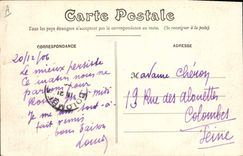 Carte Postale
Tous les pays étrangers n'acceptent pas la correspondance au recto. (Se renseigner à la poste).
CORRESPONDANCE
ADRESSE
20/12/06
Le mieux persiste
Ce matin nous ne
pour
midi
Je me
fait remis
bon baiser
Louis
Madame Chéron
19 Rue des Alouettes
Colombes
Seine